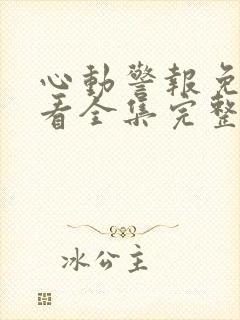 心動警報免
看全集完整
冰公主